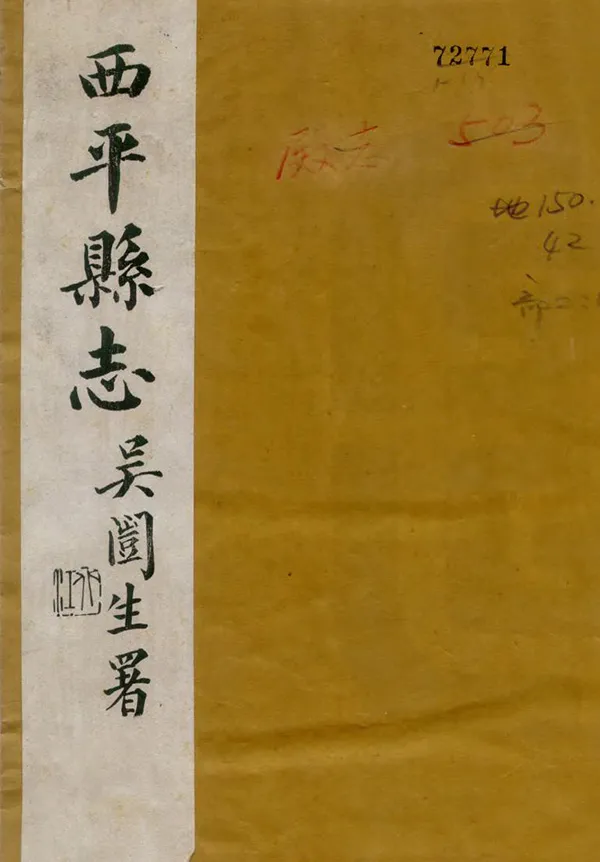 西平縣志
吳闓生署
72771
503
地150.
42